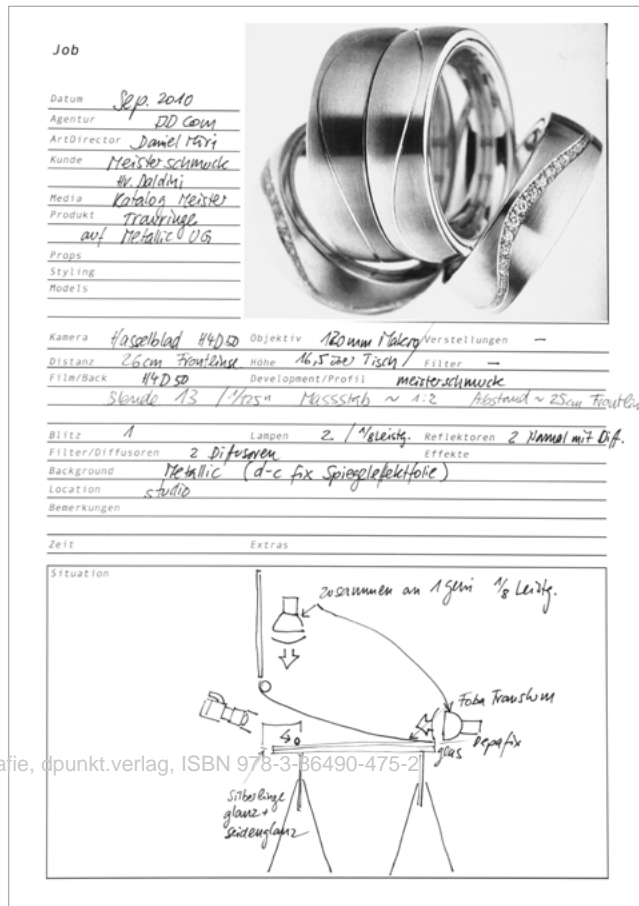 Job
Datum Sep. 2010
Agentur DD Com
ArtDirector Daniel
Kunde Meisterschmuck
Hr.
Media Katalog Meister
Produkt Trauringe
auf Metallic UG
Props
Styling
Models
Kamera Hasselblad H4D50 Objektiv 120mm Makro Verstellungen –
Distanz 26cm Frontlinse Höhe 16,5 über Tisch Filter –
Film/Back H4D50 Development/Profil meisterschmuck
Blende 13 / 1/125" Massstab ~ 1:2 Abstand ~ 25cm Frontlin
Blitz 1 Lampen 2 / 1/8 Leistg. Reflektoren 2 Normal mit Diff.
Filter/Diffusoren 2 Diffusoren Effekte
Background Metallic (d-c fix Spiegeleffektfolie)
Location studio
Bemerkungen
Zeit Extras
Situation
zusammen an 1 Geni 1/8 Leistg.
Foba
Depafix
glas
afie, dpunkt.verlag, ISBN 978-3-86490-475-2
Silberlinge
glanz +
seidenglanz